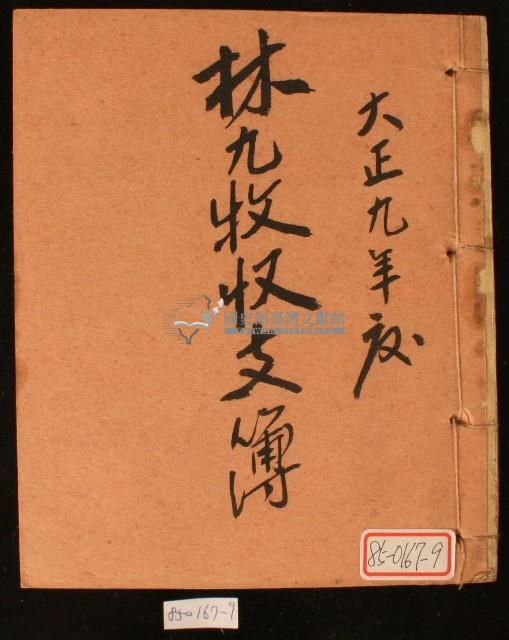 大正九年度
林九牧收支簿
國史館臺灣文獻館
85-0167-9
850167-9